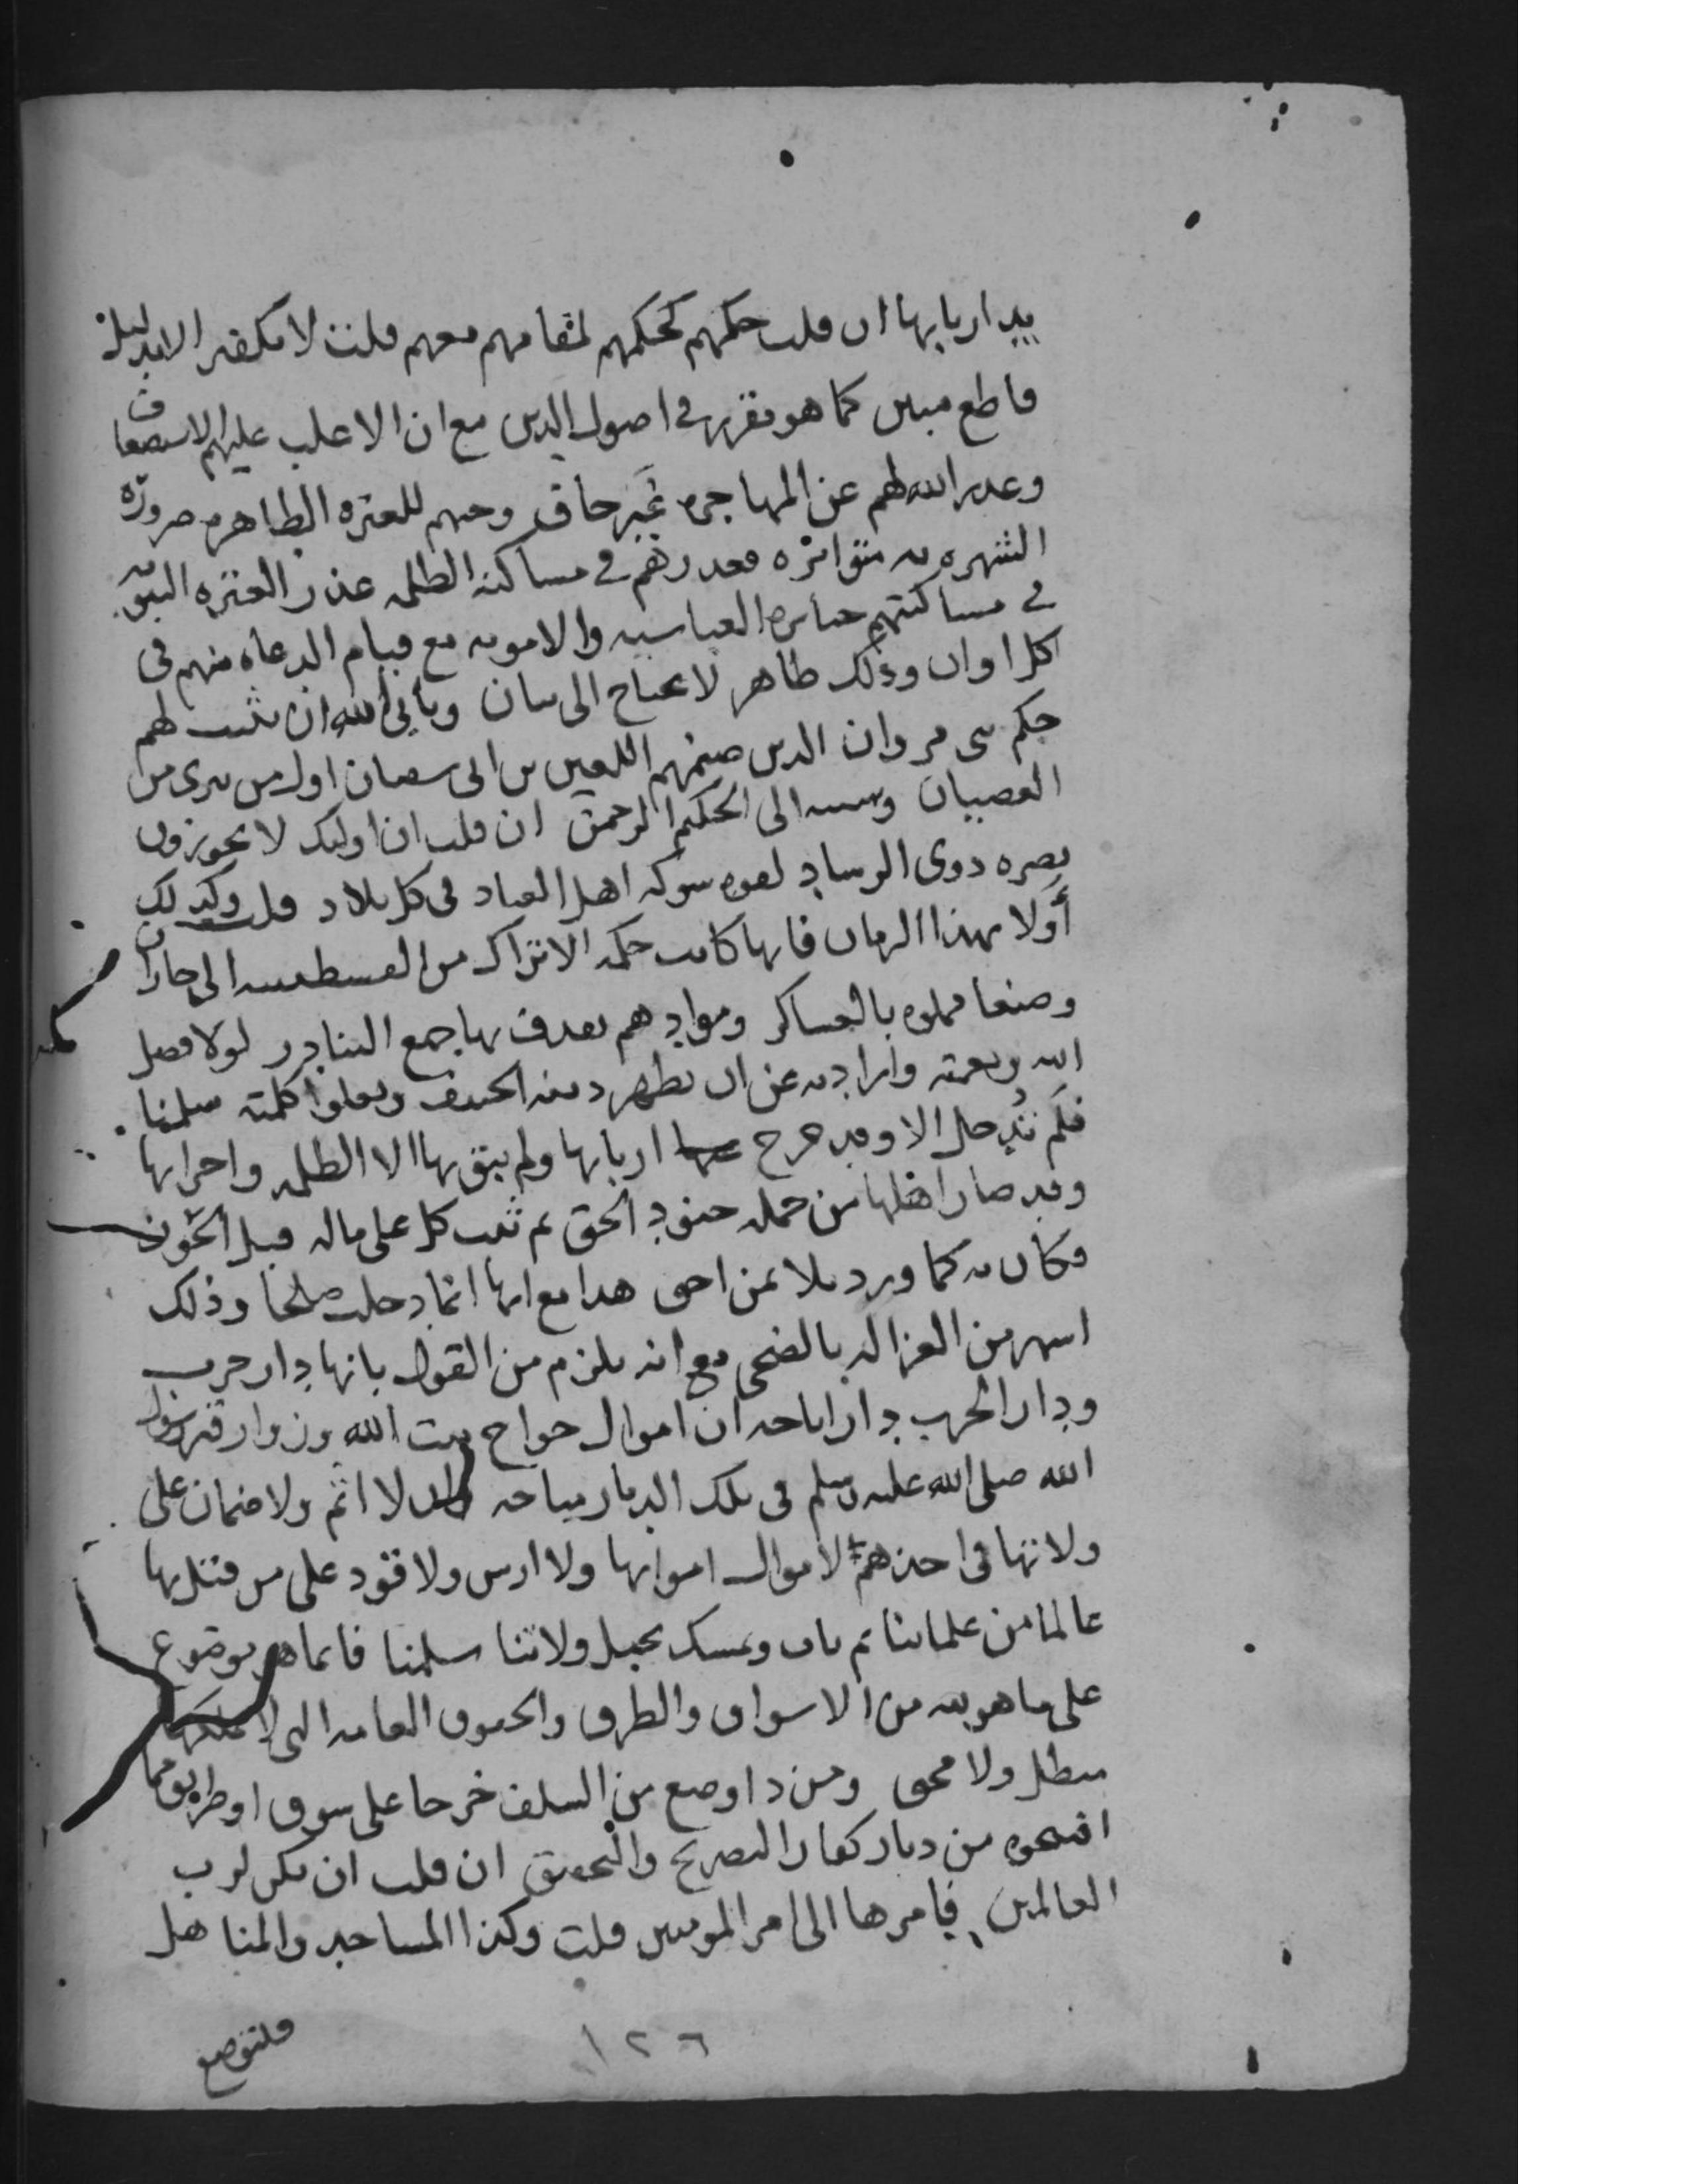 بيد اربابها ان قلت حكمهم كحكمهم لمقامهم معهم قلت لا تكفير الا بدليل
قاطع مبين كما هو مقرر في اصول الدين مع ان الاغلب عليهم الاستضعاف
وعذر الله لهم عن المهاجره غير خاف وحبهم للعتره الطاهره ضرورة
الشهره به متواتره فعذرهم في مساكنه الظلمه عذر العتره النبويه
في مساكنتهم جبابره العباسيه والامويه مع قيام الدعاه منهم في
كل اوان وذلك ظاهر لا يحتاج الى بيان ويأبى الله ان يثبت لهم
حكم بني مروان الذين صنمهم اللعين بن ابي سفيان اول من
العصيان الى الحكيم الرحمن ان قلت ان اوليك لا يجوزون
نصره ذوي الرشاد لقوه شوكه اهل العناد في كل بلاد قلت وكذلك
أولا بهذا الزمان فانها كانت حكمه الاتراك من القسطنطينيه الى جازان
وصنعا مملوه بالعساكر وموادهم تقذف بها جميع البنادر لولا فضل
الله ونعمته وارادته عن ان يظهر دينه الحنيف ويعلوا كلمته سلمنا
فلم تدخل الا وقد خرج عنها اربابها ولم يبق بها الا الظلمه واحزابها
وقد صار اهلها من جمله جنود الحق ثم ثبت كل على ماله قبل الحوز
فكان به كما ورد بلا ثمن احق هذا مع انها انما دخلت صلحا وذلك
اشهر من الغزاله بالضحى مع انه يلزم من القول بانها دار حرب
ودار الحرب دار اباحه ان اموال حواج بيت الله وزوار قبر رسول
الله صلى الله عليه وسلم في تلك الديار مباحه وانه لا اثم ولا ضمان على
ولاتها في اخذهم لاموال ولا ارش ولا قود على من قتل بها
عالما من علمائنا ثم تاب وتمسك بحبل ولاتنا سلمنا فانما هو موضوع
على ما هو به من الاسواق والطرق والحقوق العامه التي لا
مبطل ولا محق ومن ذا وضع من السلف خرجا على سوق او طريق مما
افتتحوه من ديار كفار التصريح والتحقيق ان قلت ان تكن لرب
العالمين فامرها الى امير المومنين قلت وكذا المساجد والمناهل
فلتوضع
١٢٦